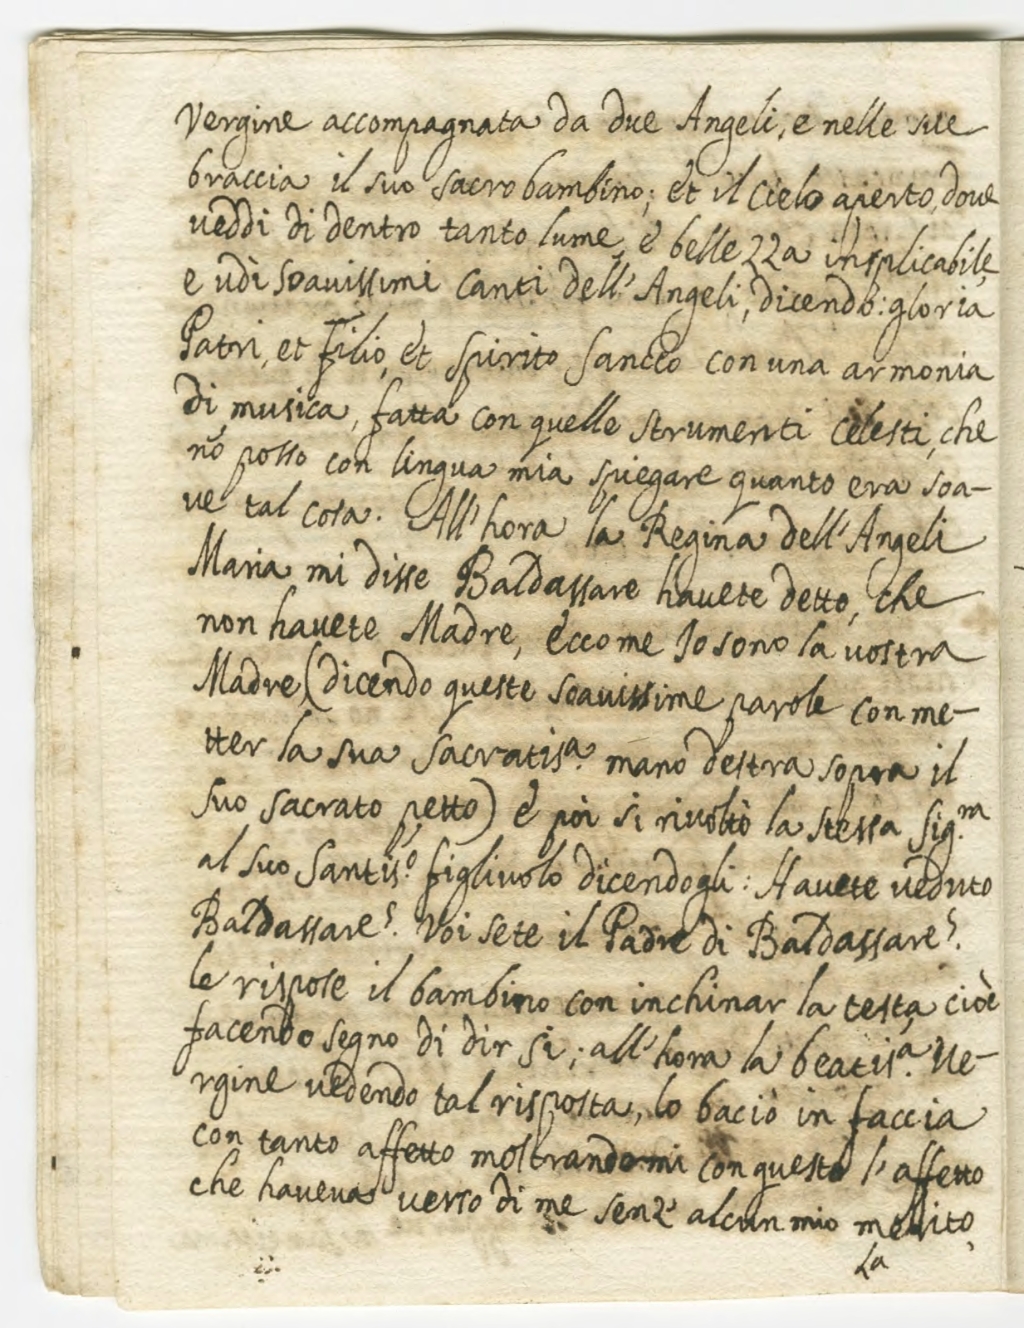 Vergine accompagnata da due Angeli, e nelle sue
braccia il suo sacro bambino; et il Cielo aperto, doue
ueddi di dentro tanto lume, è belle22a insplicabile,
e udì soauissimi Canti dell' Angeli, dicendo: gloria
Patri, et Filio, et Spirito Sancto con una armonia
di musica, fatta con quelle strumenti Celesti, che
nõ posso con lingua mia spiegare quanto era soa-
ue tal cosa. All' hora la Regina dell' Angeli
Maria mi disse Baldassare hauete detto, che
non hauete Madre, èccome Io sono la uostra
Madre (dicendo queste soauissime parole con me-
tter la sua Sacratisª. mano destra sopra il
suo sacrato petto) è poi si riuoltò la stessa Sig.ra
al suo Santisº. figliuolo dicendogli: Hauete ueduto
Baldassare? Voi sete il Padre di Baldassare?
le rispose il bambino con inchinar la testa cioè
facendo segno di dir si; all' hora la beatisª. Ue-
rgine uedendo tal risposta, lo baciò in faccia
con tanto affetto mostrandomi con questo l' affetto
che haueua uerso di me sen2' alcun mio merito,
La